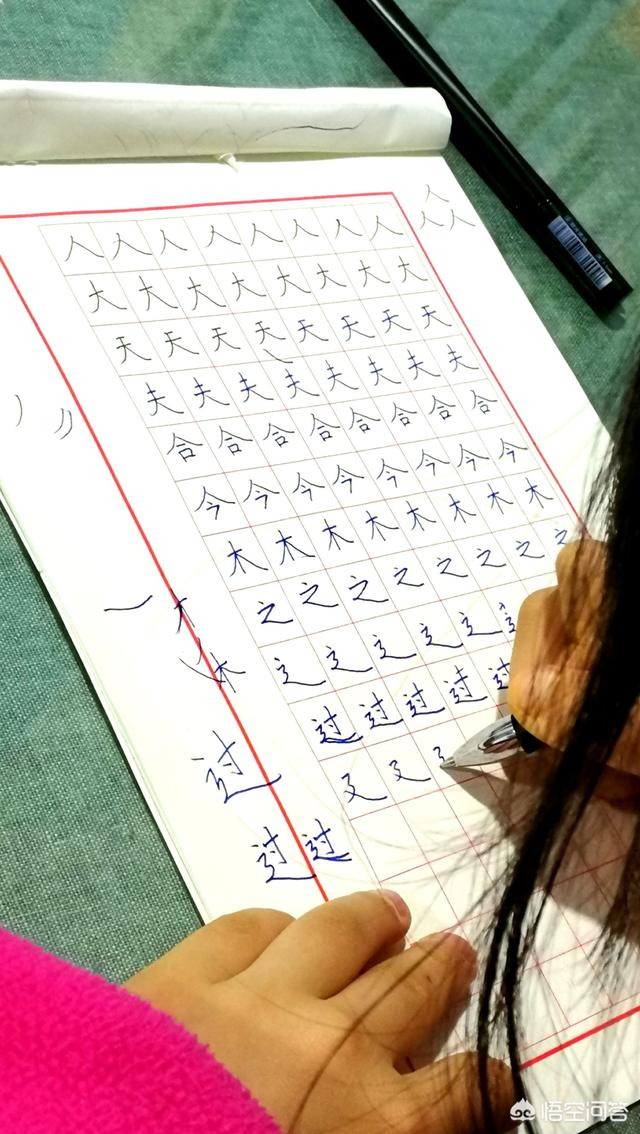 人
人 人
人 人 人 人 人 人 人 人
大 大 大 大 大 大 大 大
天 天 天 天 天 天 天 天
夫 夫 夫 夫 夫 夫 夫 夫
合 合 合 合 合 合 合 合
今 今 今 今 今 今 今 今
木 木 木 木 木 木 木 木
之 之 之 之 之 之 之 之
辶 辶 辶 辶 辶
过 过 过 过 过
廴 廴
过
过 过
悟空问答